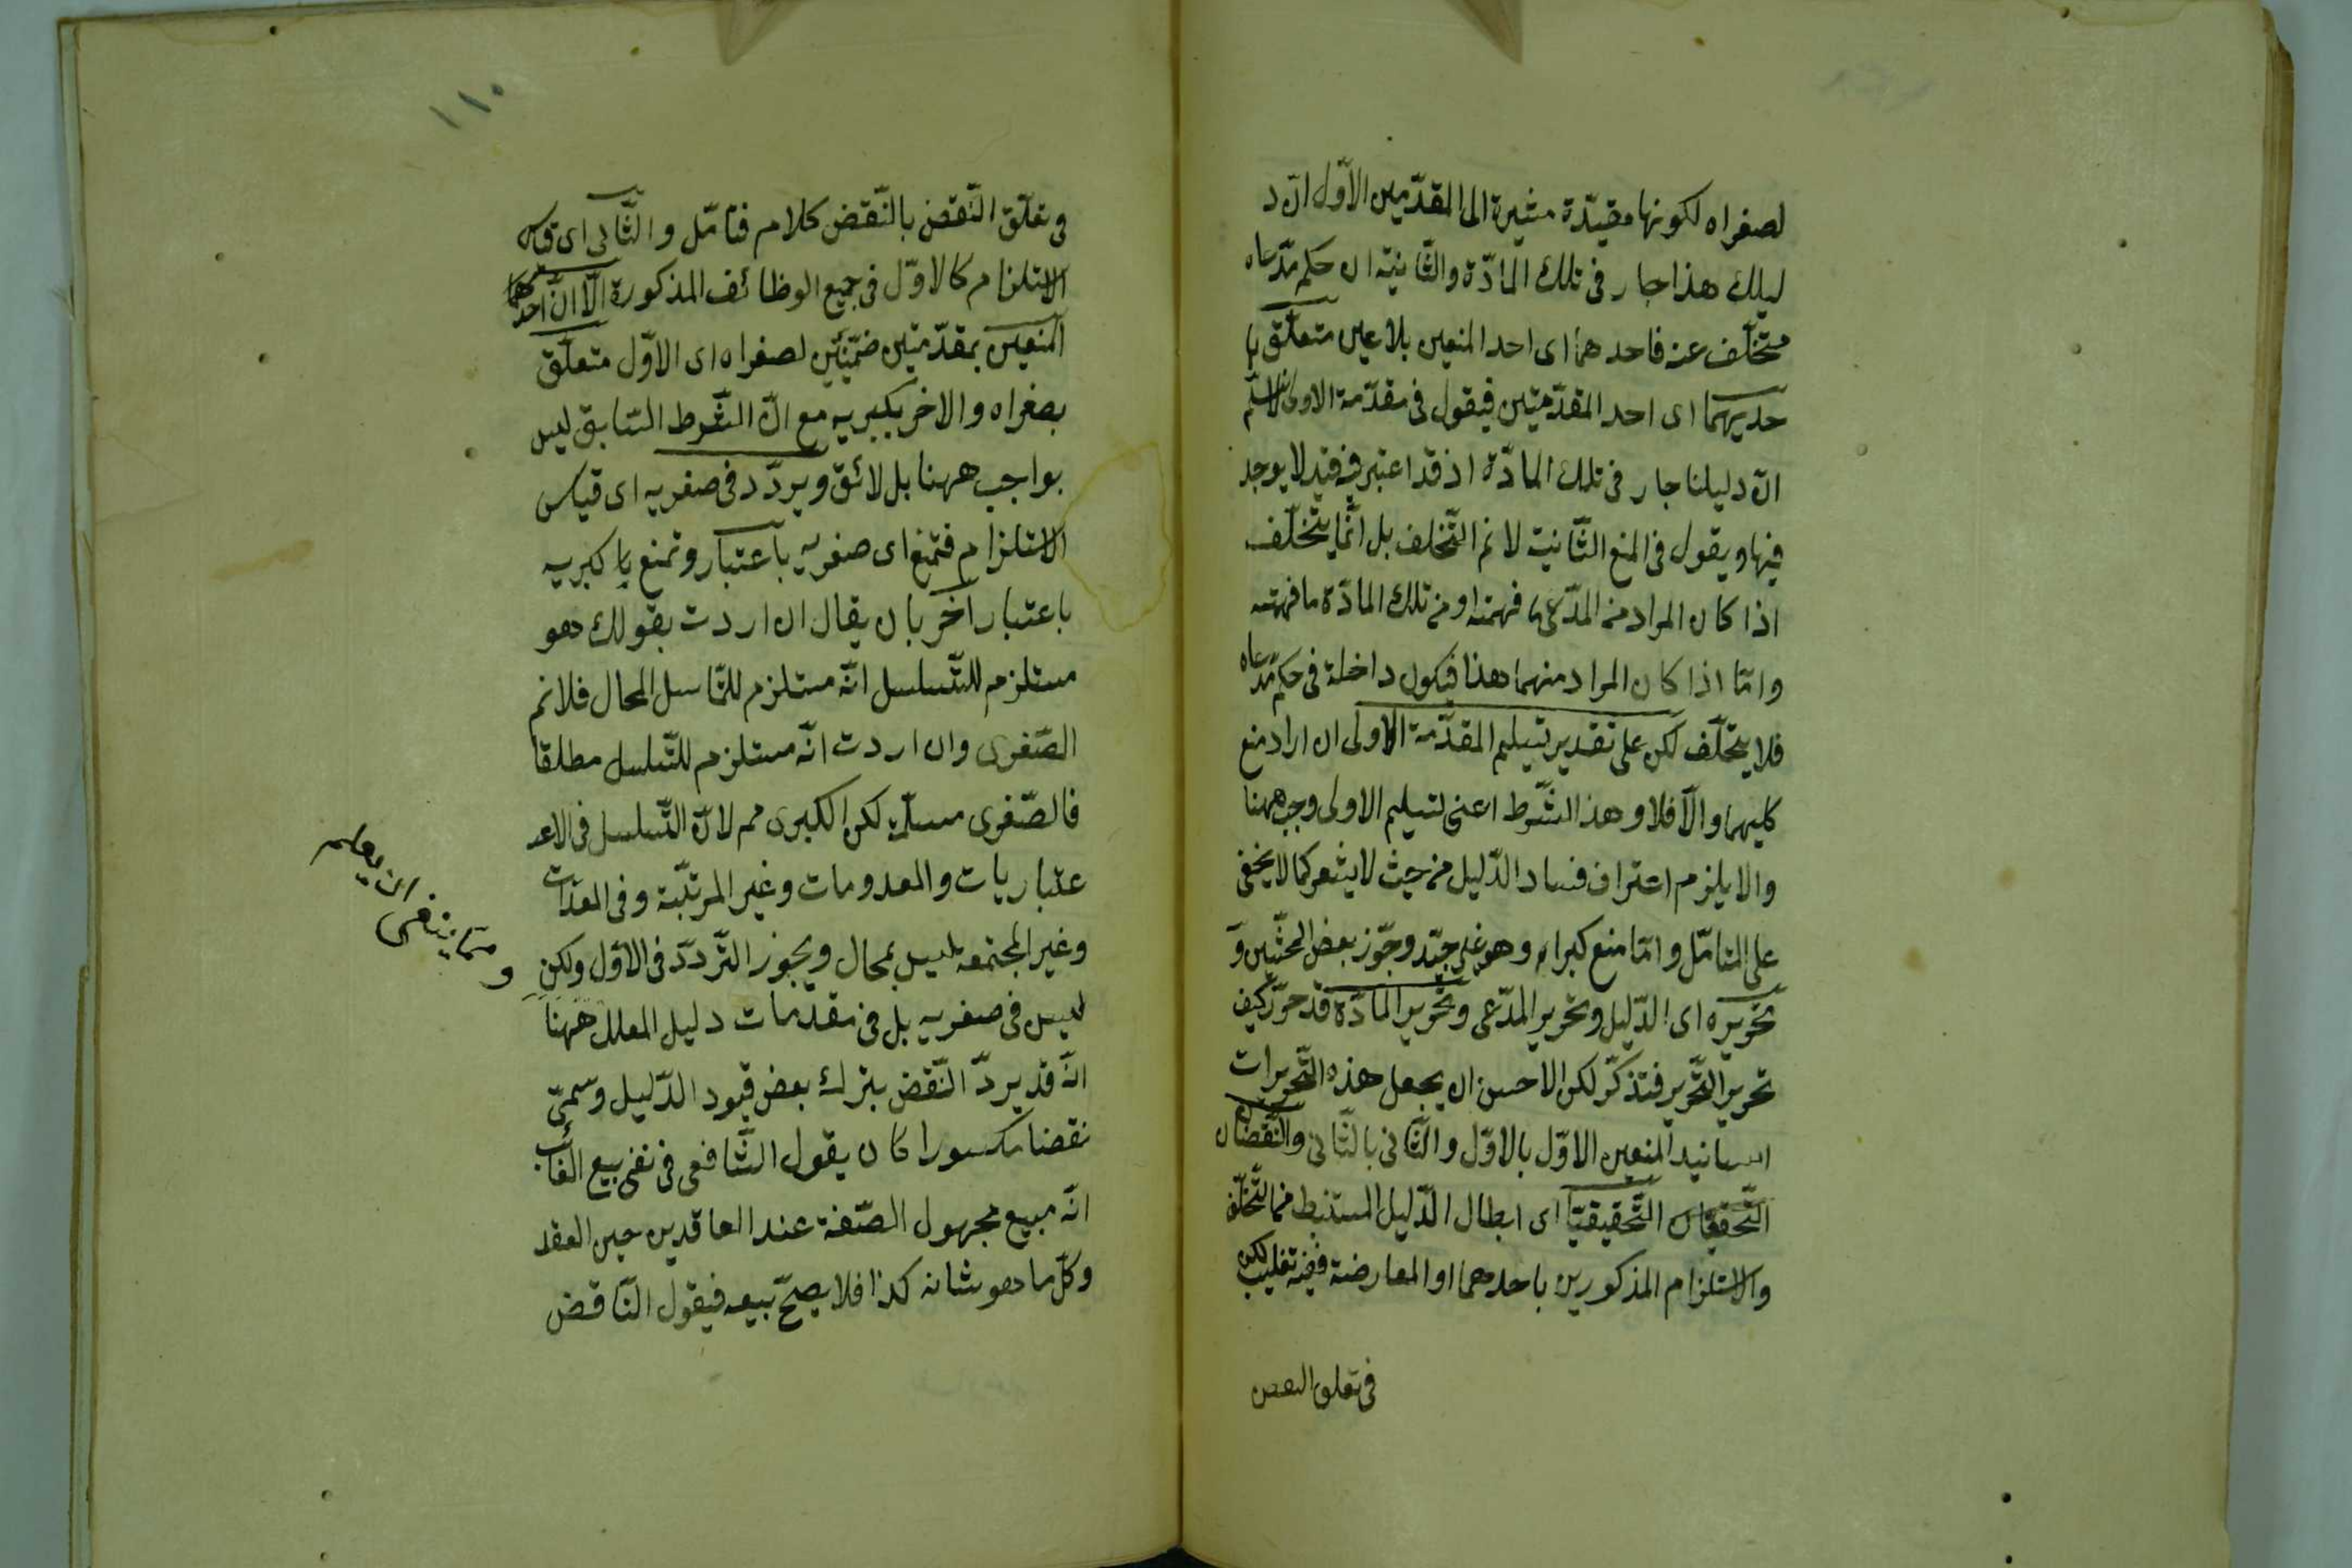 لصغراه لكونها مقيّدة مشيرة الى المقدّمتين الاوّل انّ د
ليلك هذا جار فى تلك المادّة والثّانية ان حكم مدّعاه
متخلّف عنه فاحدهما اى احد المنعين بلا عين متعلّق با
حديهما اى احد المقدّمتين فيقول فى مقدّمة الاولى لا نسلّم
انّ دليلنا جار فى تلك المادّة اذ قد اعتبر فيه قيد لا يوجد
فيها ويقول فى المنع الثّانية لا نم التّخلف بل انّما يتخلّف
اذا كان المراد من المدّعى ما فهمته او من تلك المادّة ما فهمته
وامّا اذا كان المراد منهما هذا فيكون داخلة فى حكم مدّعاه
فلا يتخلّف لكن على تقدير تسليم المقدّمة الاولى ان اراد منع
كليهما والّا فلا وهذا الشّرط اعنى تسليم الاولى وجب ههنا
والا يلزم اعتراف فساد الدّليل من حيث لا يشعر كما لا يخفى
على المتامّل وامّا منع كبراه وهو غير جيّد وجوّز بعض المحشّين وَ
تحريره اى الدّليل وتحرير المدّعى وتحرير المادّة قد حرّر كيف
تحرير التّحرير فتذكّر لكن الاحسن ان يجعل هذه التّحريرات
اسانيد المنعين الاوّل بالاوّل والثّانى بالثّانى والنّقضان
التّحقيقان التّحقيقيّا اى ابطال الدّليل المستنبط من التّخلّف
والاستلزام المذكورين باحدهما او المعارضة ففيه تغليب لكن
فى تعلق النقض
١١٠
فى تعلّق النّقض بالنّقض كلام فتامّل والثّانى اى قياس
الاستلزام كالاوّل فى جميع الوظائف المذكورة الّا انّ احدهما
المنعين بمقدّمتين ضمنيّتين لصغراه اى الاوّل متعلّق
بصغراه والاخر بكبريه مع انّ الشّرط السّابق ليس
بواجب ههنا بل لائق ويردّد فى صغريه اى قياس
الاستلزام فتمنع اى صغريه باعتبار وتمنع يا كبريه
باعتبار آخر بان يقال ان اردت بقولك هو
مستلزم للتّسلسل انّه مستلزم للتّاسل المحال فلا نم
الصّغرى وان اردت انّه مستلزم للتّسلسل مطلقا
فالصّغرى مسلّمة لكن الكبرى مم لانّ التّسلسل فى الاعد
عتباريات والمعدومات وغير المرتّبة وفى المعدّات
وغير المجتمعه ليس بمحال ويجوز التّردد فى الاوّل ولكن
ليس فى صغريه بل فى مقدّمات دليل المعلل ههنا
انّه قد يردّ النّقض بترك بعض قيود الدّليل وسمىّ
نقضا مكسورا كان يقول الشّافعى فى نفى بيع الغائب
انّه مبيع مجهول الصّفة عند العاقدين حين العقد
وكلّ ما هو شانه كذا فلا يصحّ بيعه فيقول النّاقض
و ممّا ينبغى ان يعلم